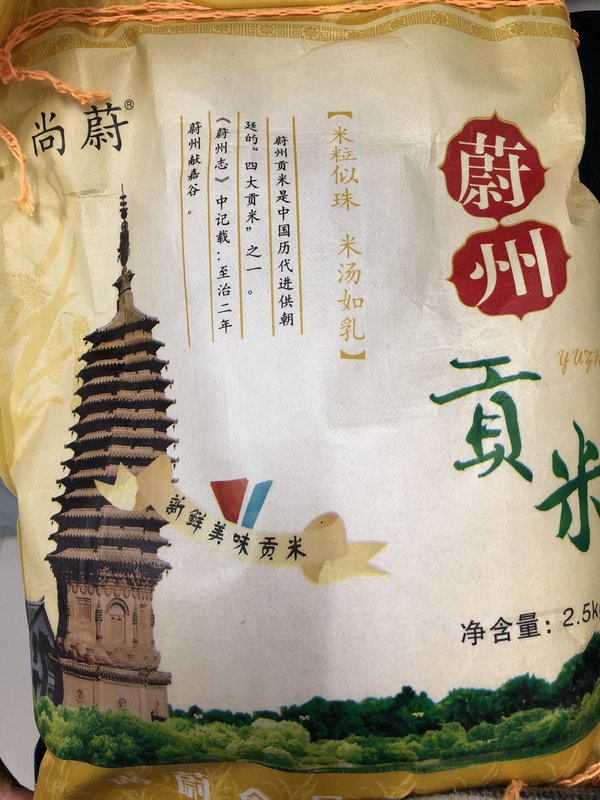 尚蔚®
蔚州
YUZH
贡米
【米粒似珠 米汤如乳】
蔚州贡米是中国历代进供朝
廷的“四大贡米”之一。
《蔚州志》中记载：至治二年
蔚州献嘉谷。
新鲜美味贡米
净含量：2.5k
尚蔚食